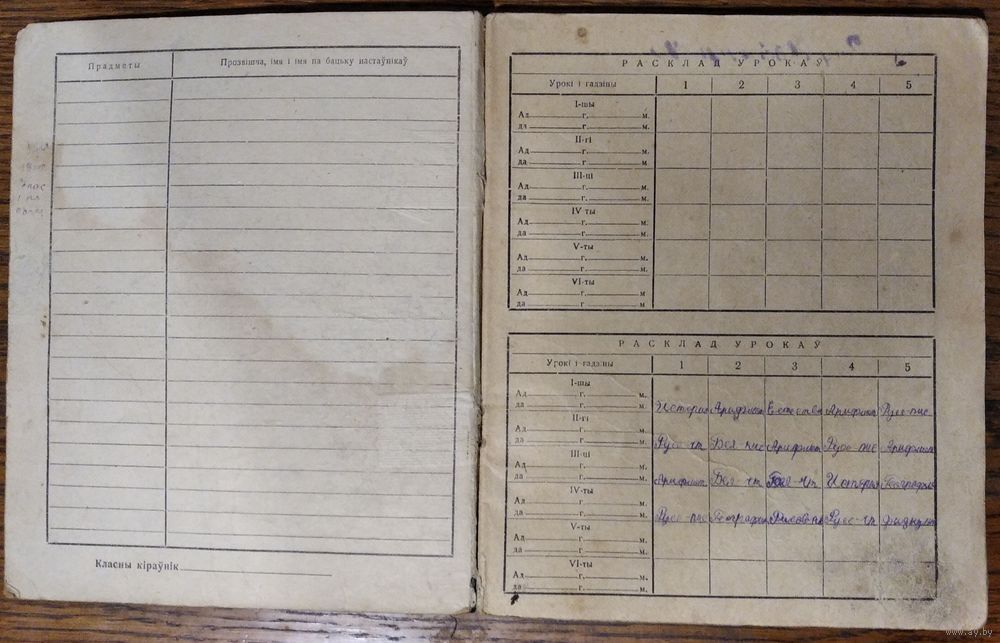 Прадметы Прозвішча, імя і імя па бацьку настаўнікаў
Класны кіраўнік
РАСКЛАД УРОКАЎ
Урокі і гадзіны 1 2 3 4 5
I-шы
Ад г. м.
да г. м.
II-гі
Ад г. м.
да г. м.
III-ці
Ад г. м.
да г. м.
IV-ты
Ад г. м.
да г. м.
V-ты
Ад г. м.
да г. м.
VI-ты
Ад г. м.
да г м
РАСКЛАД УРОКАЎ
Урокі і гадзіны 1 2 3 4 5
I-шы
Ад г.
да г. м. История Арифмет Естеств Арифмет Русс-пис
II-гі
Ад г.
да г. м. Русс чт Бел пис Арифмет Русс пис Арифмет
III-ці
Ад г.
да г. м. Арифмет Бел чт чт История География
IV-ты
Ад г.
да г. м. Русс-пис География Русс-чт Физкульт
V-ты
Ад г. м.
да г. м.
VI-ты
Ад г. м.
да г. м.
www.ay.by